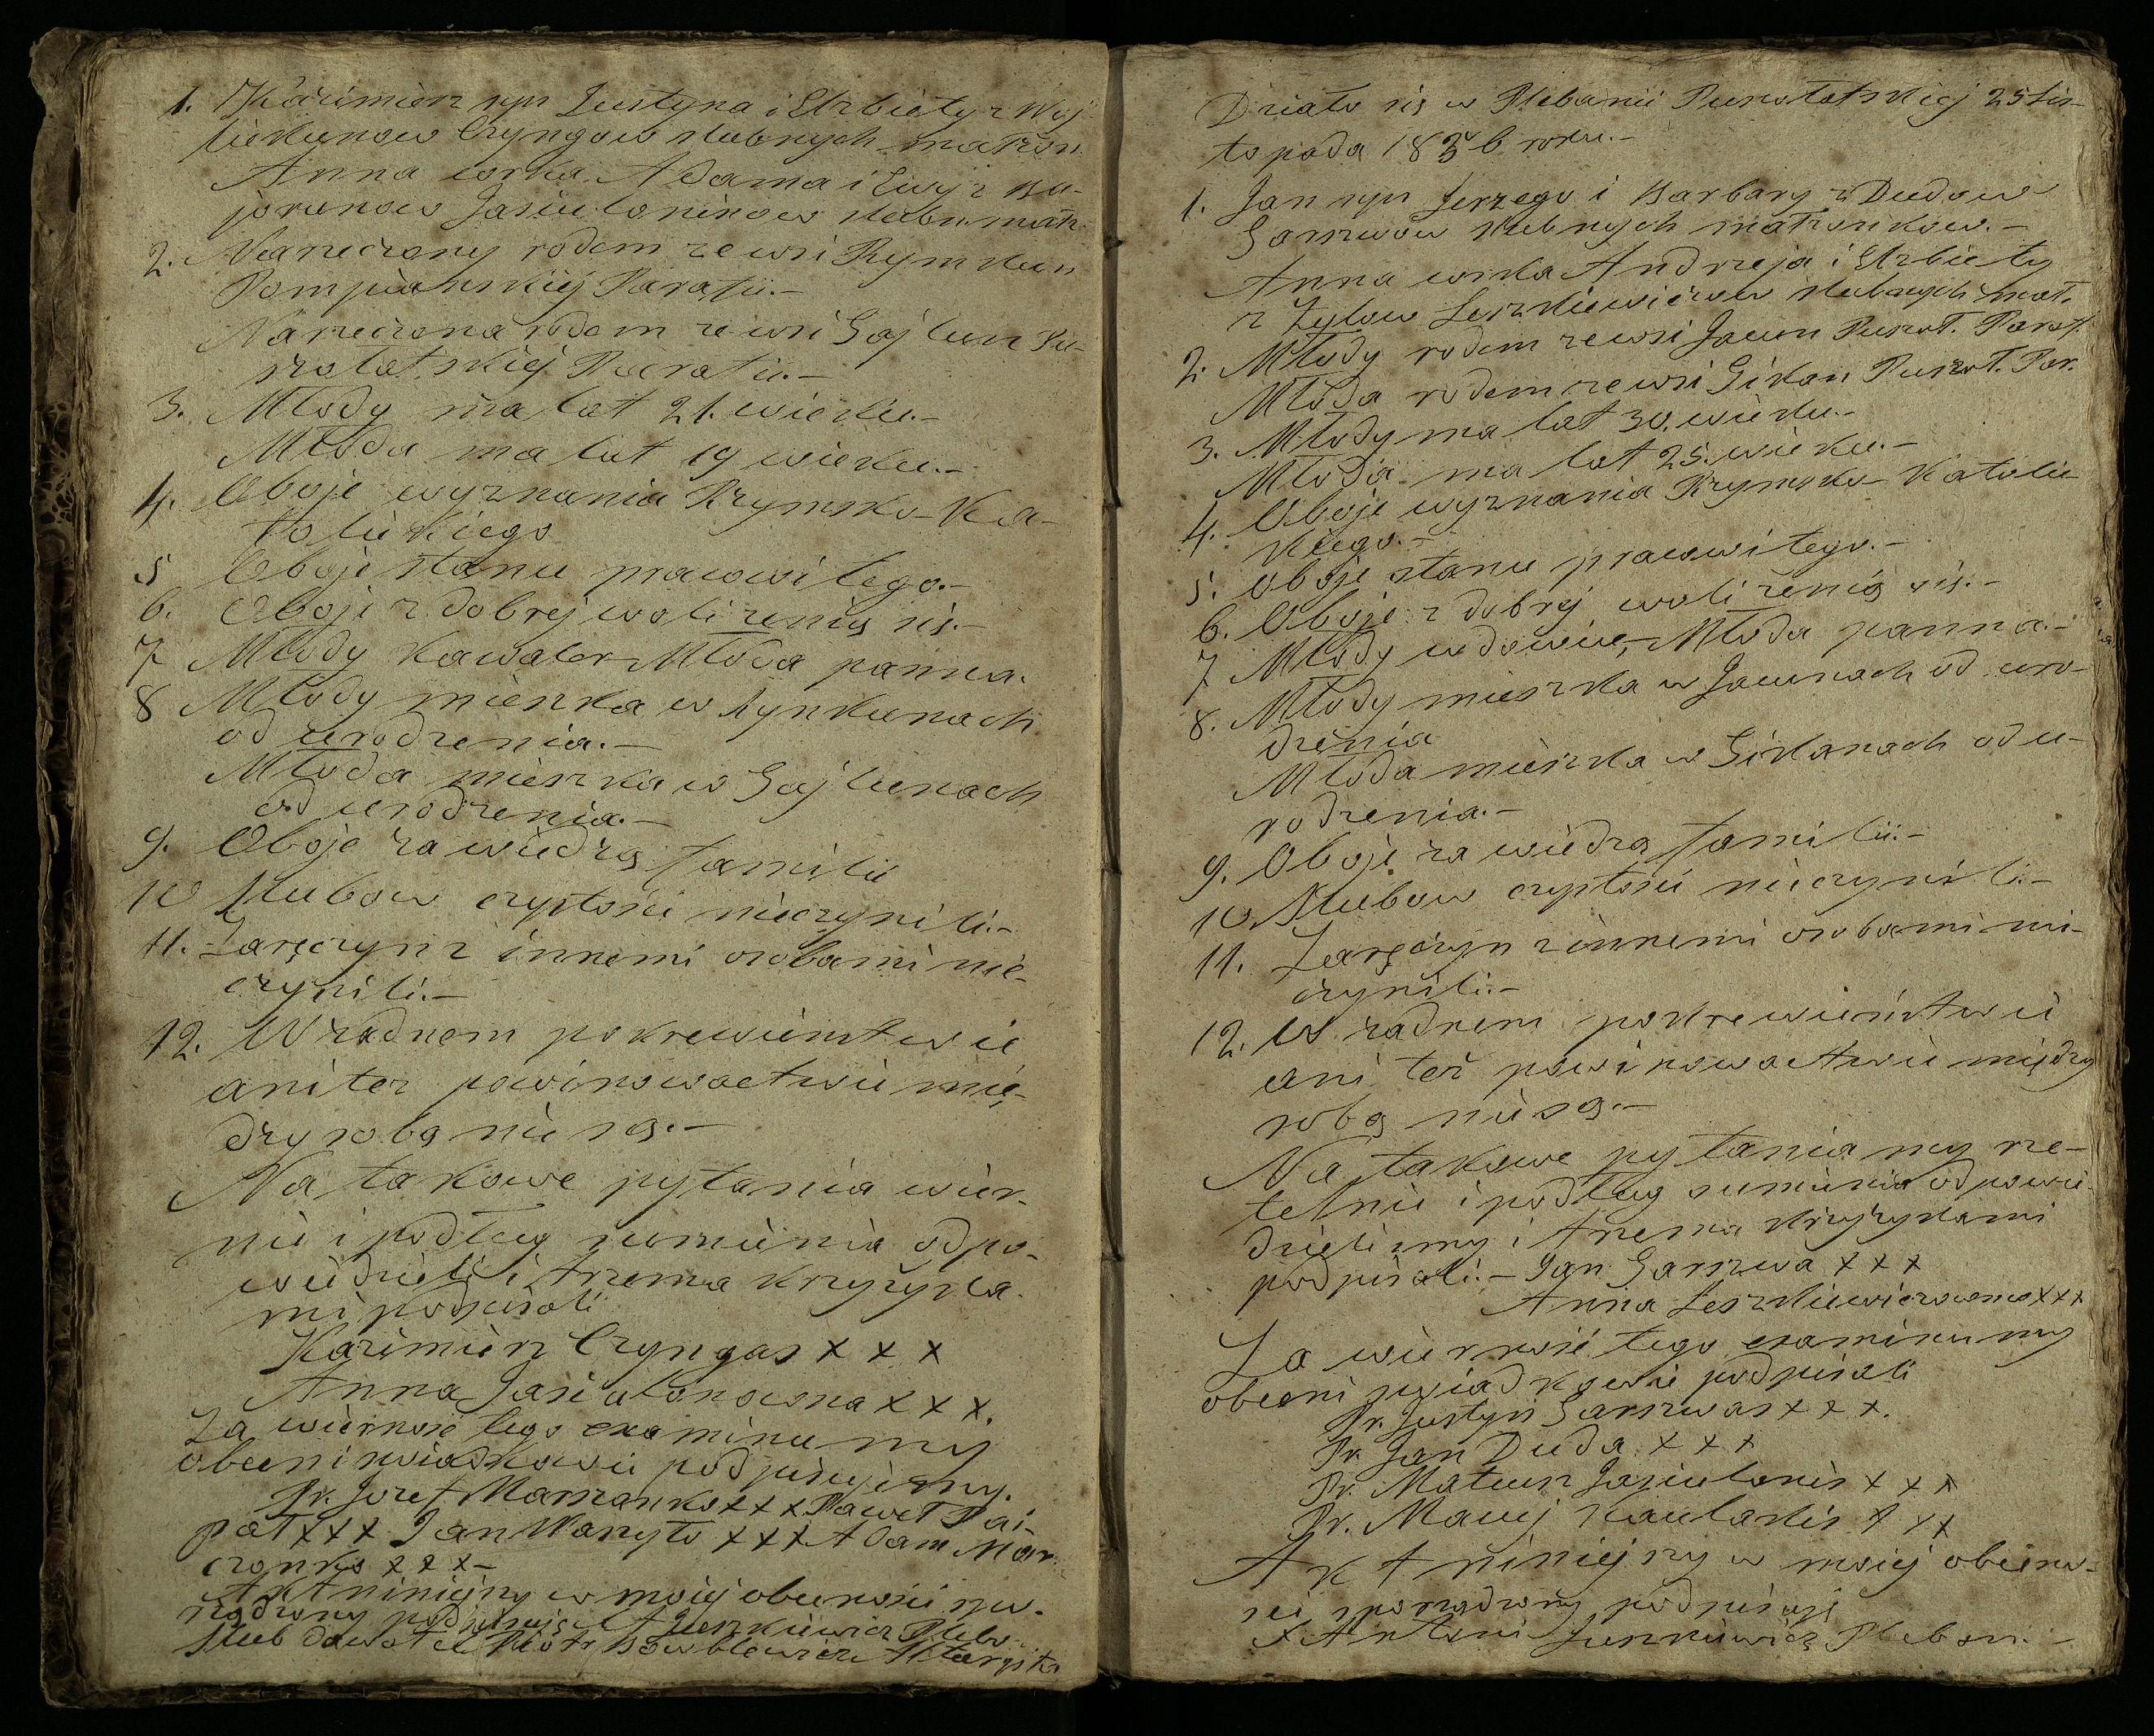 1. Kazimierz syn Justyna i Elzbiety z Woj
ciekunow Czyngow slubnych małżon.
Anna corka Adama i Ewy z Ba-
jorunow Jasiulonisow slubn. małż.
2. Narzeczony rodem ze wsi Rymkun
Pompianskiej Parafii.-
Narzeczona rodem ze wsi Gajlun Pu-
szołatskiej Parafii.-
3. Młody ma lat 21. wieku.-
Młoda ma lat 19 wieku.-
4. Oboje wyznania Rzymsko-Ka-
tolickiego
5 Oboje stanu prawowitego.-
6. Oboje z dobrej woli żenią się.-
7 Młody Kawaler Młoda panna.
8 Młody mieszka w Rynkunach
od urodzenia.-
Młoda mieszka w Gajlunach
od urodzenia.-
9. Oboje za wiedzą familii
10 Slubow czystości nieczynili.-
11. Zaręczyn z innemi osobami nie-
czynili.-
12. W żadnem pokrewienstwie
ani tez powinowactwie mię-
dzy sobą nie są.-
Na takowe pytania wier-
nie i podług sumienia odpo-
wiedzieli i trzema krzyżyka-
mi podpisali
Kazimierz Czyngas x x x
Anna Jasiulonowna x x x.
Za wierność tego examinu my
obecni swiadkowie podpisujemy.
Pr. Jozef Marszanks x x x Paweł Pai-
pał x x x Jan Warzyło x x x Adam Mar-
czonks x x x-
Akt niniejszy w mojej obecności spo-
rządzony podpisuję X A Juszkiewicz Plebn
Slub dawał X Piotr Bowblewicz Altarysta
Działo się w Plebanii Puszołatskiej 25 Lis-
topada 1836 roku.-
1. Jan syn Jerzego i Barbary z Dudow
Garszwow slubnych małżonkow.-
Anna corka Andrzeja i Elzbiety
z Zylow Leszkiewiczow slubnych małż.
2. Młody rodem ze wsi Jaun Puszoł. Paraf.
Młoda rodem ze wsi Gikan Puszoł. Par.
3. Młody ma lat 30. wieku.-
Młoda ma lat 25. wieku.-
4. Oboje wyznania Rzymsko-Katolic
kiego.-
5. Oboje stanu prawowitego.-
6. Oboje z dobrej woli żenią się.-
7 Młody wdowiec, Młoda panna.-
8. Młody mieszka w Jaunach od uro-
dzenia
Młoda mieszka w Gikanach od u-
rodzenia.-
9. Oboje za wiedzą familii.-
10. Slubow czystości nieczynili.-
11. Zaręczyn z innemi osobami nie-
czynili.-
12. W żadnem pokrewieństwie
ani też powinowactwie między
sobą nie są.-
Na takowe pytania my rze-
telnie i podług sumienia odpowie-
dzielismy i trzema krzyżykami
podpisali.- Jan Garszwa x x x
Anna Leszkiewiczowna x x x
Za wierność tego examinu my
obecni swiadkowie podpisali
Pr. Justyn Garszwas x x x.
Pr Jan Duda x x x
Pr. Mateusz Jasiulonis x x x
Pr. Maciej Kaulakis x x x
Akt niniejszy w mojej obecno-
sci sporządzony podpisuję
X Antoni Juszkiewicz Pleban.-